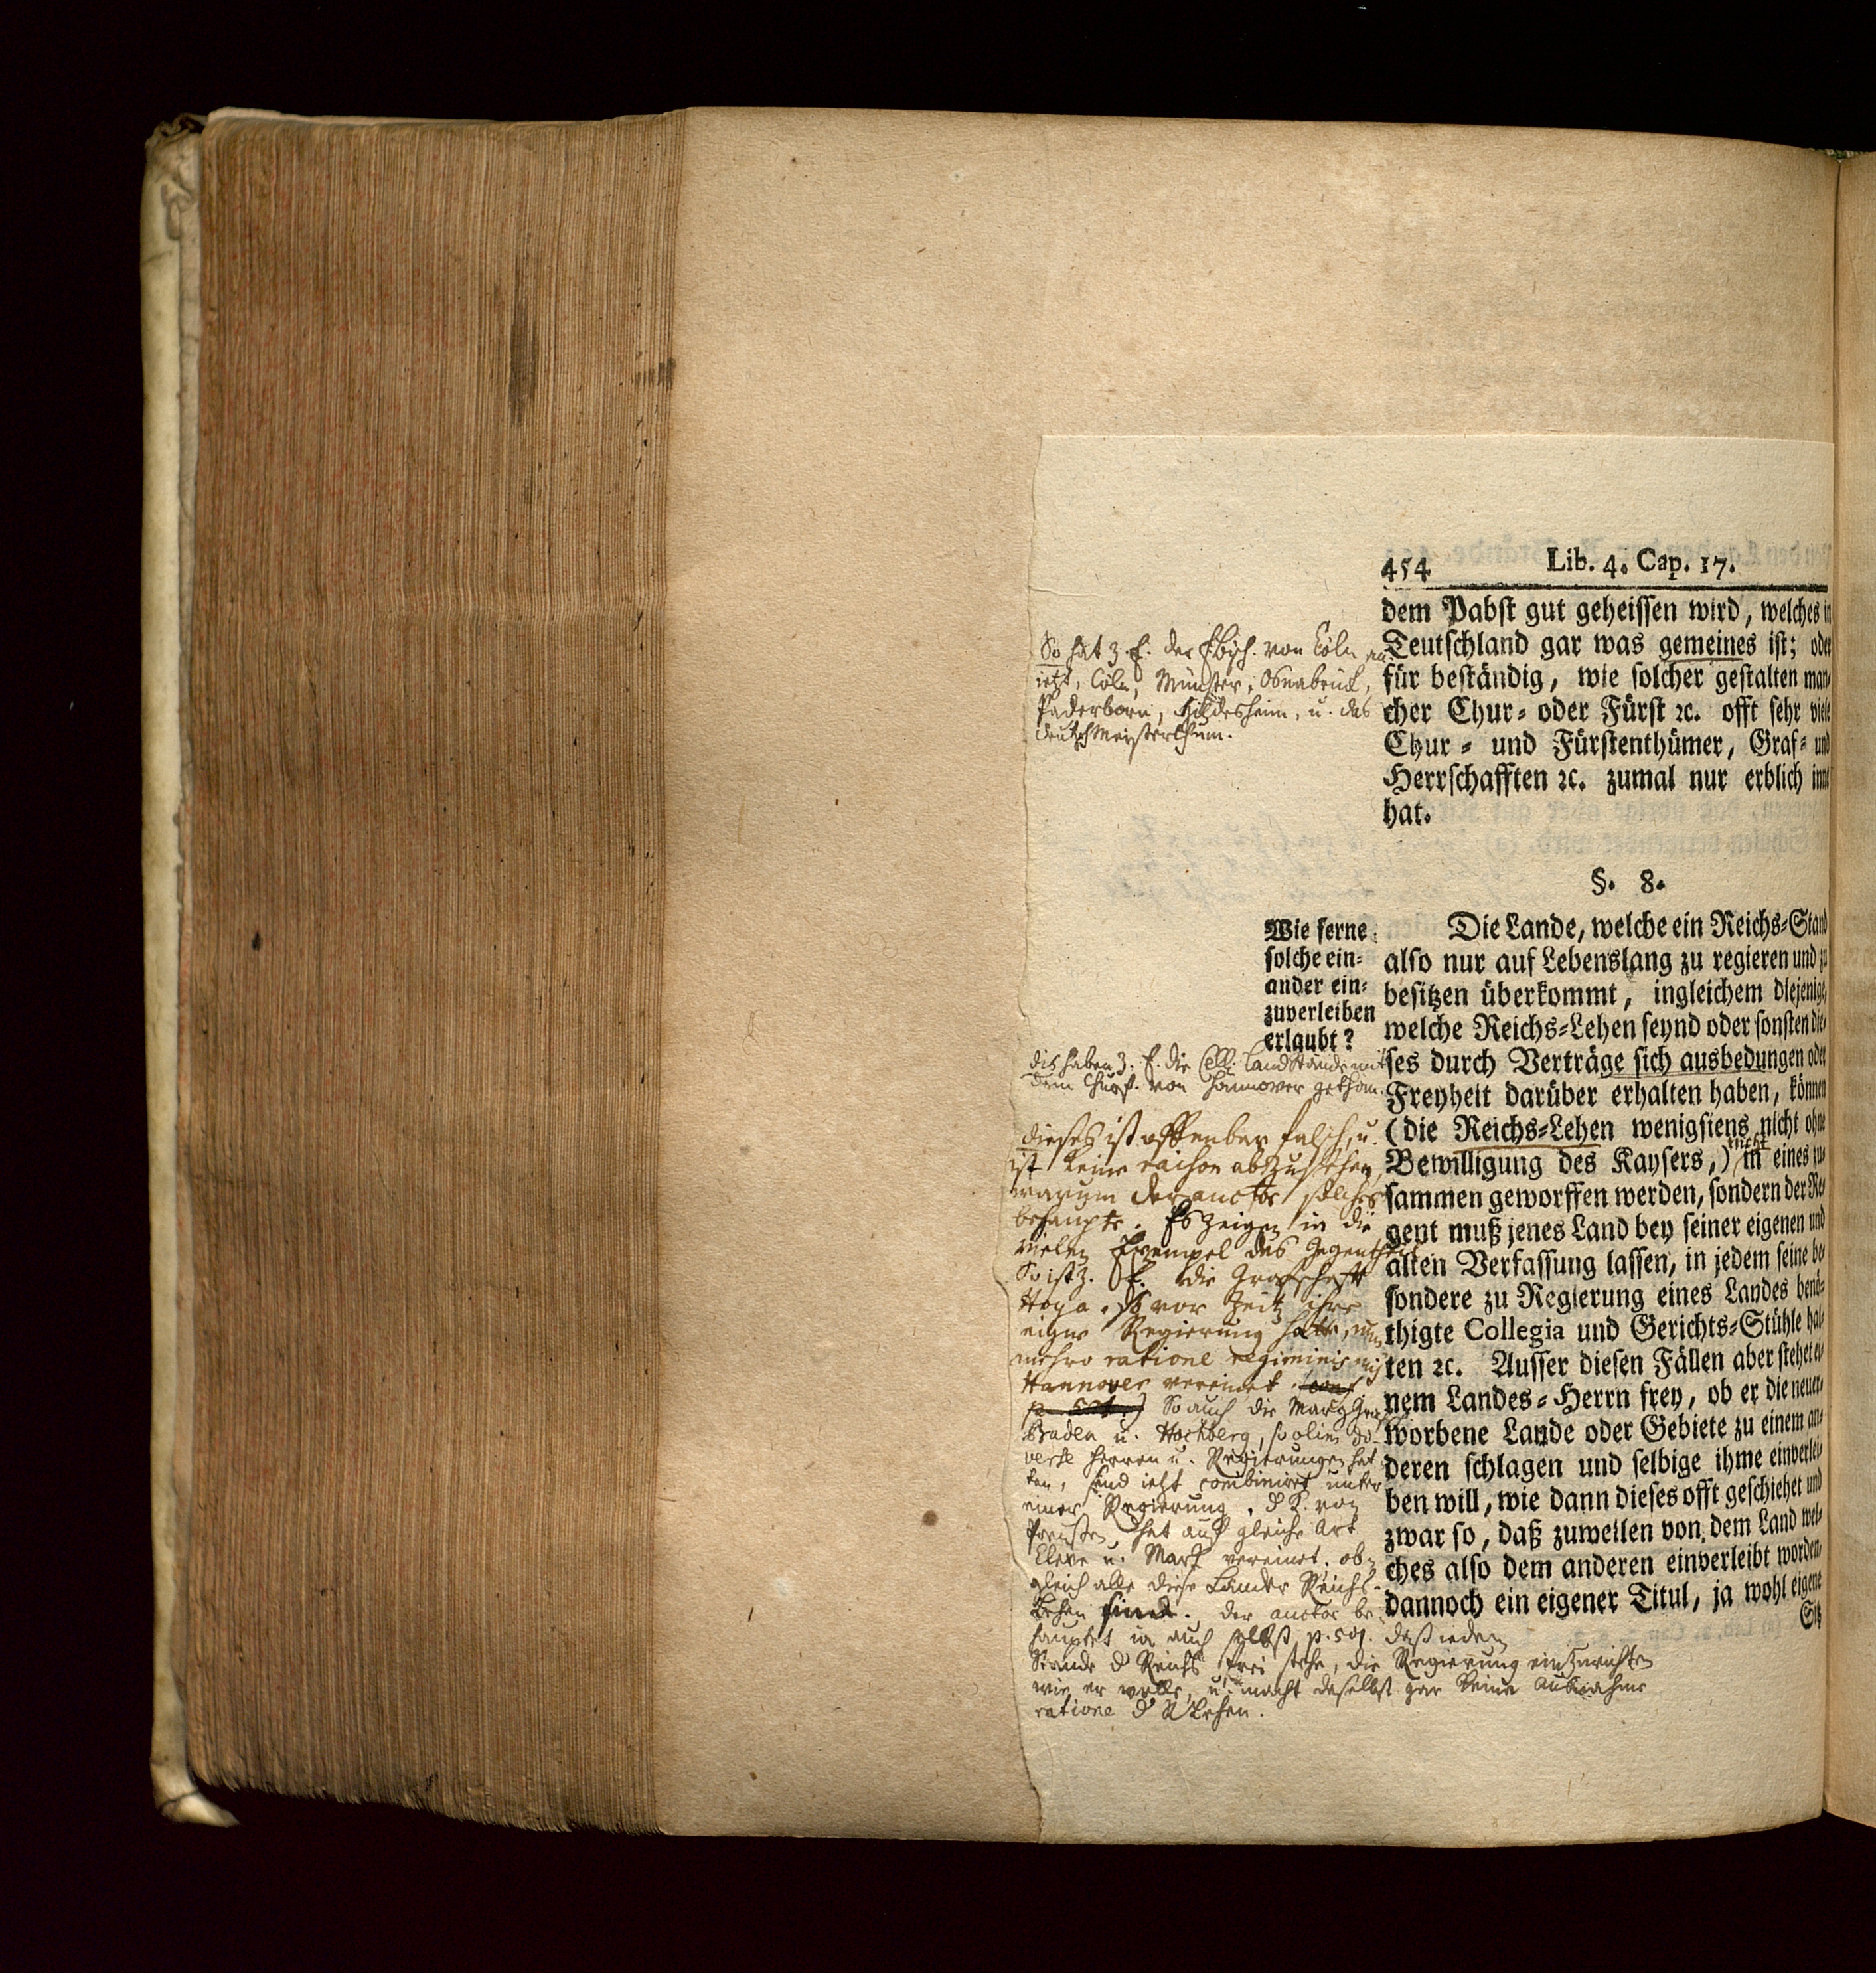 454 Lib. 4. Cap. 17.
dem Pabst gut geheissen wird, welches in
Teutschland gar was gemeines ist; oder
für beständig, wie solcher gestalten man-
cher Chur- oder Fürst ꝛc. offt sehr viele
Chur- und Fürstenthümer, Graf- und
Herrschafften ꝛc. zumal nur erblich inne
hat.
So hat z. E. der Ebisch. von Cöln an
ietzt, Cöln, Münster, Osnabrück,
Paderborn, Hildesheim, u. das
deutschmeisterthum.
§. 8.
Wie ferne
solche ein-
ander ein-
zuverleiben
erlaubt?
Die Lande, welche ein Reichs-Stand
also nur auf Lebenslang zu regieren und zu
besitzen überkommt, ingleichem diejenige,
welche Reichs-Lehen seynd oder sonsten die-
ses durch Verträge sich ausbedungen oder
Freyheit darüber erhalten haben, können
(die Reichs-Lehen wenigstens nicht ohne
Bewilligung des Kaysers,) nicht in eines zu-
sammen geworffen werden, sondern der Re-
gent muß jenes Land bey seiner eigenen und
alten Verfassung lassen, in jedem seine be-
sondere zu Regierung eines Landes benö-
thigte Collegia und Gerichts-Stühle hal-
ten ꝛc. Ausser diesen Fällen aber stehet ei-
nem Landes-Herrn frey, ob er die neuer-
worbene Lande oder Gebiete zu einem an-
deren schlagen und selbige ihme einverlei-
ben will, wie dann dieses offt geschiehet und
zwar so, daß zuweilen von dem Land wel-
ches also dem anderen einverleibt worden,
dannoch ein eigener Titul, ja wohl eigene
Sitz
dis haben z. E. die Cell. Landstände mit
dem Churf. von Hannover gethan.
dieses ist offenbar falsch, u.
ist keine raison abzusehen,
warum der auctor solches
behaupte. Es zeigen ia die
vielen Exempel das Gegentheil
So ist z. E. die Grafschafft
Hoya, so vor Zeit ihre
eigne Regierung hatte, nun
mehro ratione regiminis mit
Hannover vereinet.
So auch die Marggrafsch.
Baden u. Hochberg, so olim
Herren u. Regierungen hat
ten, sind ietzt combiniret unter
einer Regierung. d K. von
Preussen hat auf gleiche Art
Cleve u. Mark vereinet. ob
gleich alle diese Länder Reichs-
Lehen sind. der auctor be-
hauptet ia auch selbst p. 501. daß iedem
Stande d Reichs frei stehe, die Regierung einzurichten
wie er wolle, u. macht daselbst gar keine Ausnahme
ratione d RLehen.